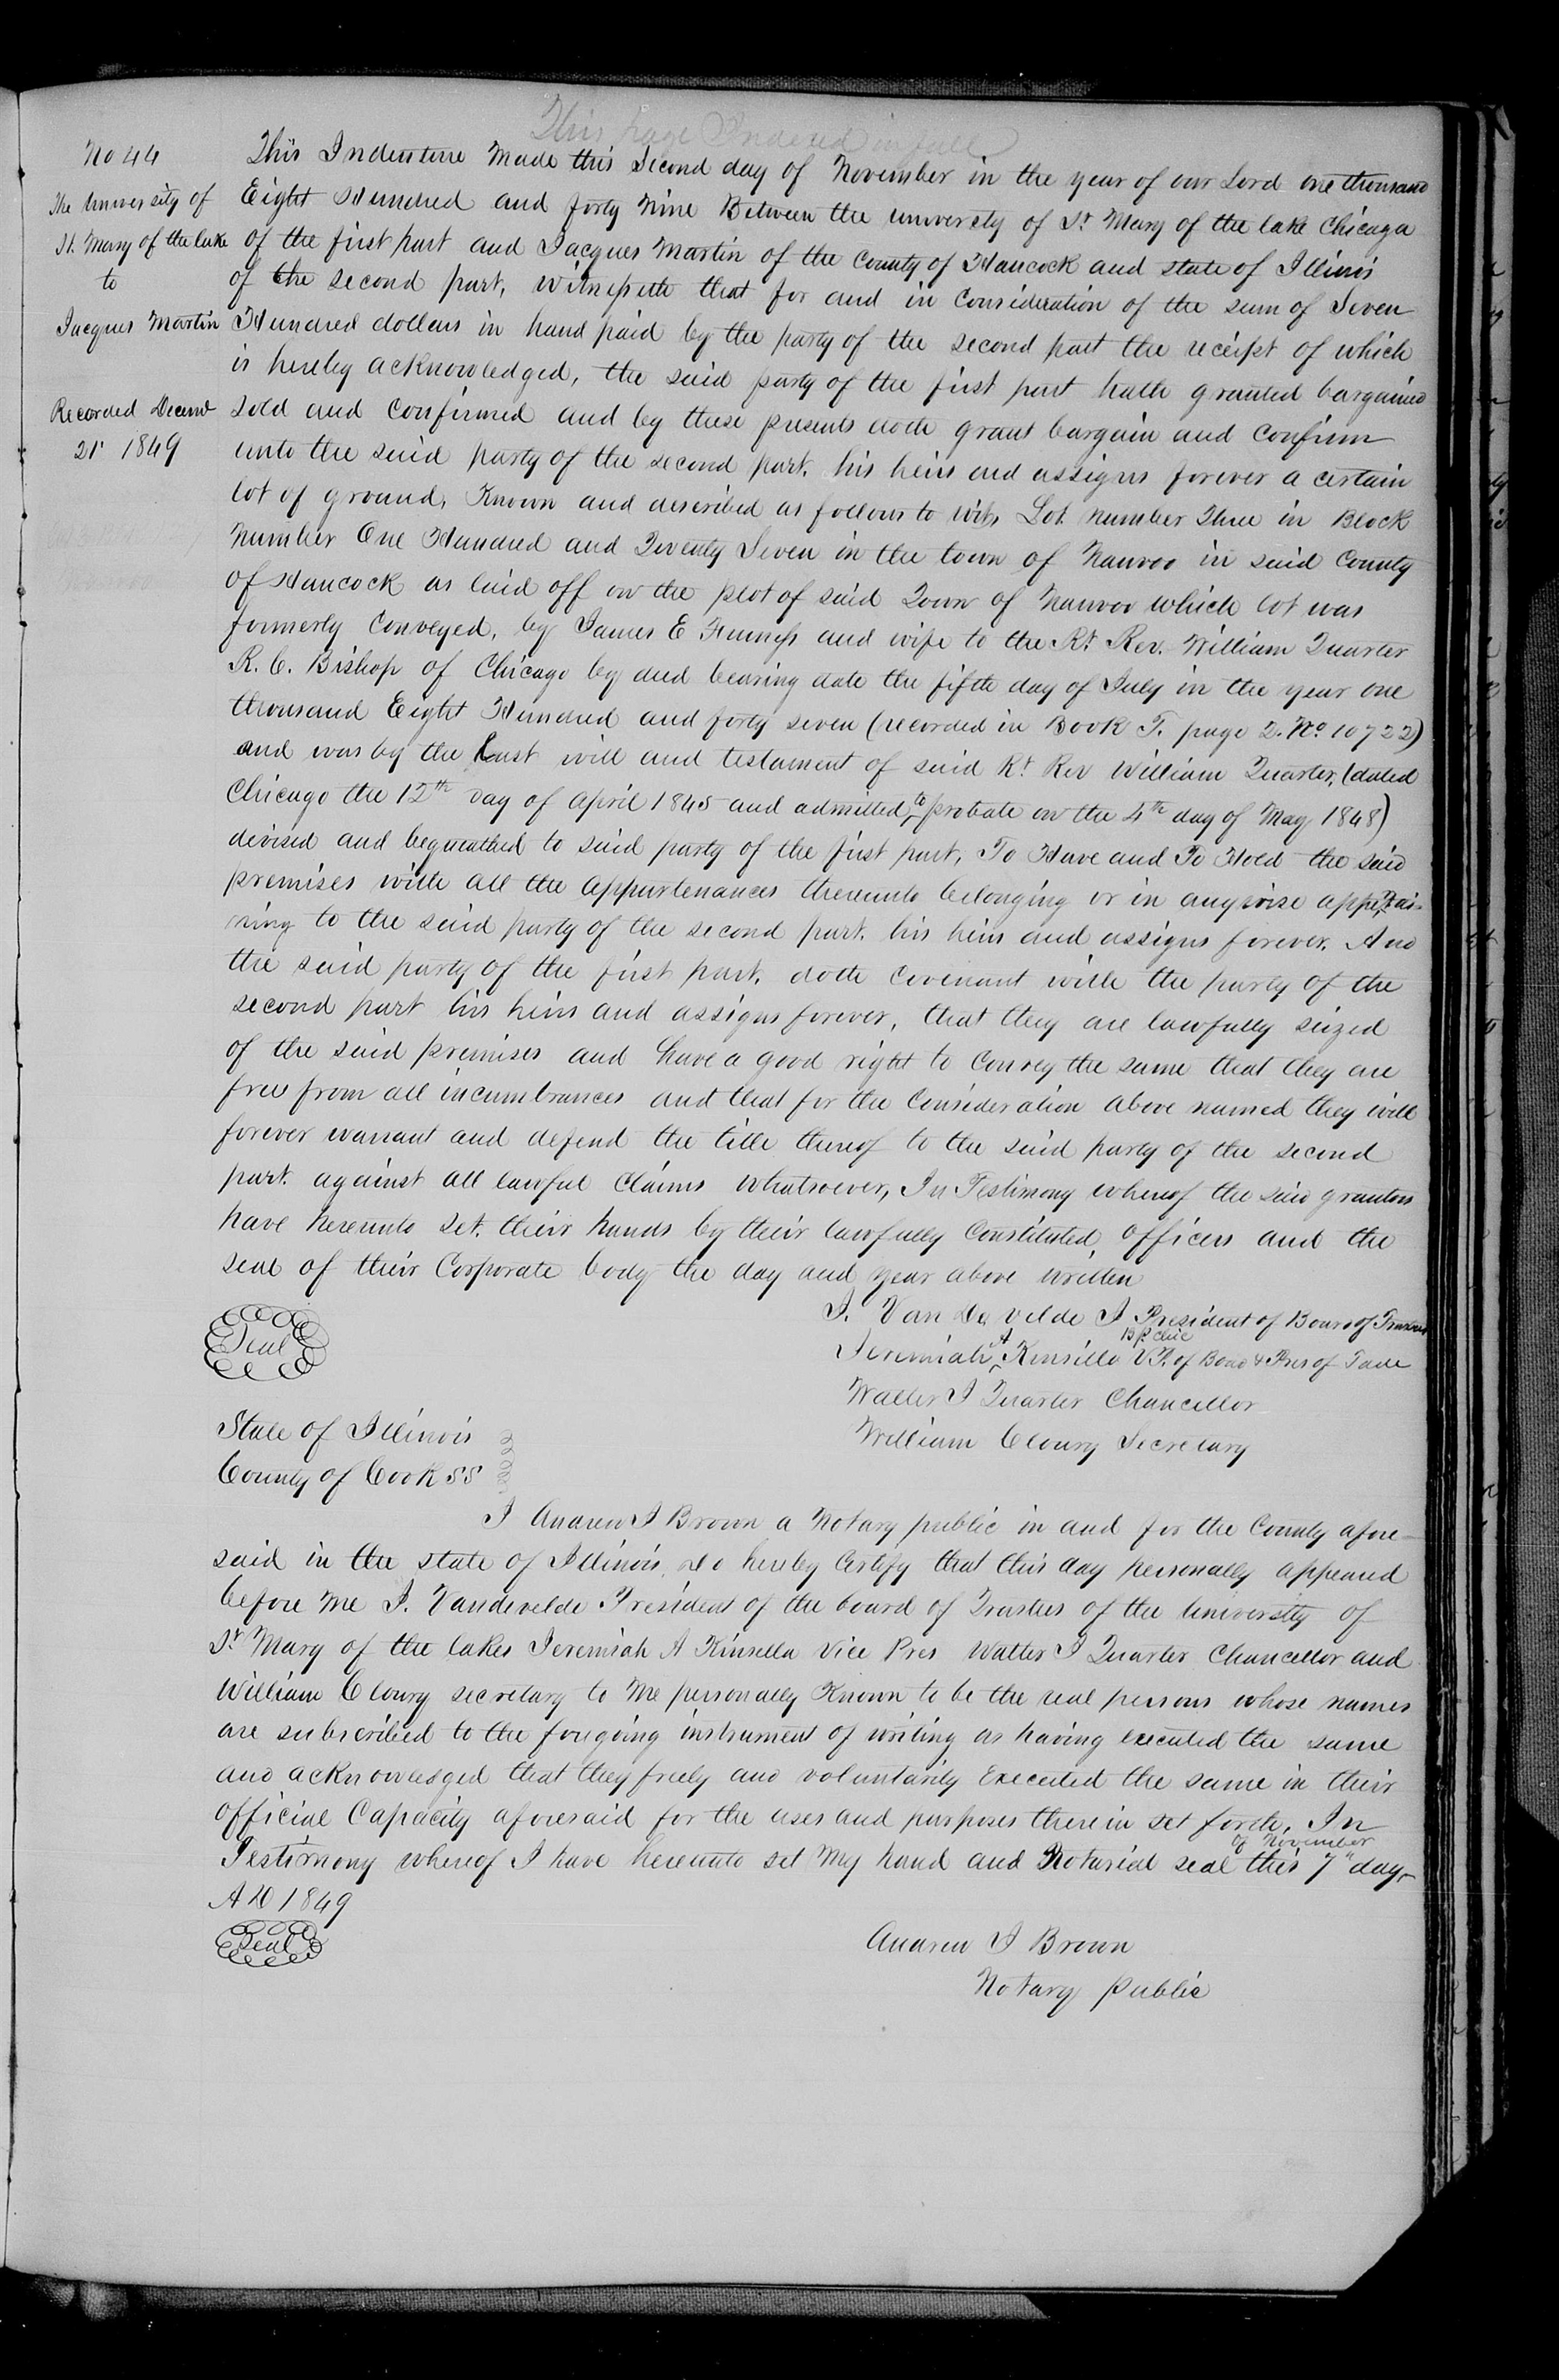 This page Indexed in full
No 44
The University of
St. Mary of the lake
to
Jacques Martin
Recorded Decem
21st 1849
This Indenture Made this Second day of November in the year of our Lord one thousand
Eight Hundred and forty Nine Between the university of St Mary of the lake Chicago
of the first part and Jacques Martin of the County of Hancock and state of Illinois
of the second part, Witnesseth that for and in Consideration of the sum of Seven
Hundred dollars in hand paid by the party of the second part the receipt of which
is hereby acknowledged, the said party of the first part hath granted bargained
sold and Confirmed and by these presents doth grant bargain and Confirm
unto the said party of the second part, his heirs and assigns forever a certain
lot of ground, Known and described as follows to wit, Lot number Three in Block
Number One Hundred and Twenty Seven in the town of Nauvoo in said County
of Hancock as laid off on the plot of said Town of Nauvoo which lot was
formerly Conveyed, by James E Furness and wife to the Rt Rev. William Quarter
R. C. Bishop of Chicago by deed bearing date the fifth day of July in the year one
thousand Eight Hundred and forty seven (recorded in Book T. page 2. No 10722)
and was by the Last will and testament of said Rt Rev William Quarter, (dated
Chicago the 12th day of April 1845 and admitted to probate on the 4th day of May 1848)
devised and bequeathed to said party of the first part, To Have and To Hold the said
premises with all the appurtenances thereunto belonging or in anywise appertai-
ning to the said party of the second part, his heirs and assigns forever. And
the said party of the first part, doth Covenant with the party of the
second part his heirs and assigns forever, that they are lawfully seized
of the said premises and have a good right to Convey the same that they are
free from all incumbrances and that for the Consideration above named they will
forever warrant and defend the title thereof to the said party of the second
part against all lawful Claims whatsoever, In Testimony whereof the said grantors
have hereunto set their hands by their lawfully Constituted, officers and the
seal of their Corporate body the day and year above written
Seal
J. Van De Velde J President of Board of Trustees
Bp. Chic
Jeremiah A Kinsella V.P. of Board & Pres of
Walter J Quarter Chancellor
William Clowry Secretary
State of Illinois
County of Cook SS
I Andrew J Brown a Notary public in and for the County afore-
said in the state of Illinois, Do hereby Certify that this day personally appeared
before me J. Vandevelde President of the board of Trustees of the University of
St Mary of the lakes Jeremiah A Kinsella Vice Pres Walter J Quarter Chancellor and
William Clowry secretary to me personally Known to be the real persons whose names
are subscribed to the foregoing instrument of writing as having executed the same
and acknowledged that they freely and voluntarily Executed the same in their
official Capacity aforesaid for the uses and purposes therein set forth, In
Testimony whereof I have hereunto set my hand and Notarial seal this 7" day of November
A D 1849
Seal
Andrew J Brown
Notary Public